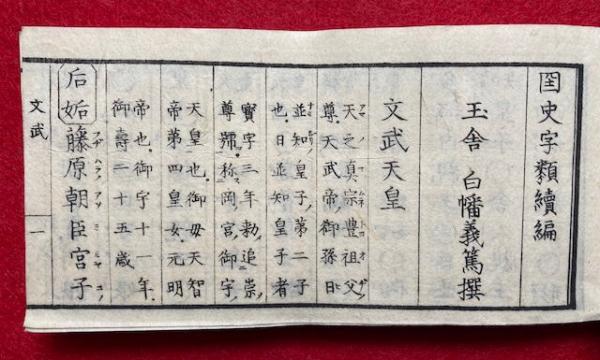 国史字類續編
玉舎 白幡義篤撰
文武天皇
天之真宗豊祖父
尊天武帝御孫日
並知皇子第二子
也日並知皇子者
寳字三年勅追崇
尊號称岡宮御宇
天皇也御母天智
帝第四皇女元明
帝也御宇十一年
御壽二十五歳
后姤 藤原朝臣宮子
文武 一